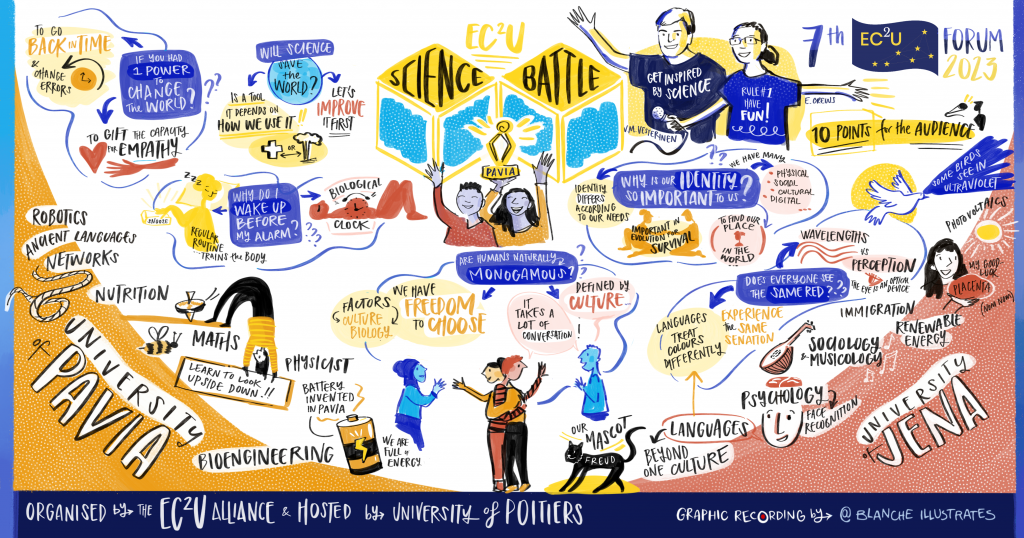 TO GO
BACK IN TIME
& CHANGE
ERRORS
IF YOU HAD
1 POWER
TO
CHANGE
THE WORLD?
??
TO GIFT THE CAPACITY
FOR EMPATHY
WILL SCIENCE
SAVE
the
WORLD?
IS A TOOL
IT DEPENDS ON
HOW WE USE IT!!
OR
LET'S
IMPROVE
IT FIRST
EC²U
SCIENCE BATTLE
PAVIA
GET INSPIRED
BY SCIENCE
V.M. VESTERINEN
RULE #1
HAVE
FUN!
E. DREWS
7th
EC²U
FORUM
2023
10 POINTS for the AUDIENCE
zzz
SNOOZE
REGULAR
ROUTINE
TRAINS the BODY.
WHY DO I
WAKE UP
BEFORE
MY ALARM?
???
BIOLOGICAL
CLOCK
IDENTITY
DIFFERS
ACCORDING
TO OUR NEEDS
??
WHY IS OUR IDENTITY
SO IMPORTANT TO US?
WE HAVE MANY
PHYSICAL
SOCIAL
CULTURAL
DIGITAL
IMPORTANT IN
EVOLUTION FOR
SURVIVAL
TO FIND OUR
PLACE
IN THE
WORLD
SOME BIRDS
SEE IN
ULTRAVIOLET
ROBOTICS
ANCIENT LANGUAGES
NETWORKS
NUTRITION
MATHS
LEARN TO LOOK
UPSIDE DOWN!!
PHYSICIST
BATTERY
INVENTED
IN PAVIA
WE ARE
FULL of
ENERGY.
BIOENGINEERING
UNIVERSITY
of
PAVIA
ARE HUMANS NATURALLY
MONOGAMOUS?
??
FACTORS
CULTURE
BIOLOGY
WE HAVE
FREEDOM
TO CHOOSE
IT
TAKES A
LOT OF
CONVERSATION!
DEFINED by
CULTURE...
DOES EVERYONE SEE
THE SAME RED?
???
WAVELENGTHS
VS
PERCEPTION
THE EYE IS AN OPTICAL
DEVICE
LANGUAGES
TREAT
COLOURS
DIFFERENTLY
EXPERIENCE
the SAME
SENATION
PHOTOVOLTAICS
MY GOOD
LUCK
PLACENTA
IMMIGRATION
RENEWABLE
ENERGY
SOCIOLOGY
& MUSICOLOGY
PSYCHOLOGY
FACE
RECOGNITION
LANGUAGES
BEYOND
ONE CULTURE
OUR
MASCOT
FREUD
UNIVERSITY
of
JENA
ORGANISED by THE EC²U ALLIANCE & HOSTED by UNIVERSITY of POITIERS
GRAPHIC RECORDING by @ BLANCHE ILLUSTRATES